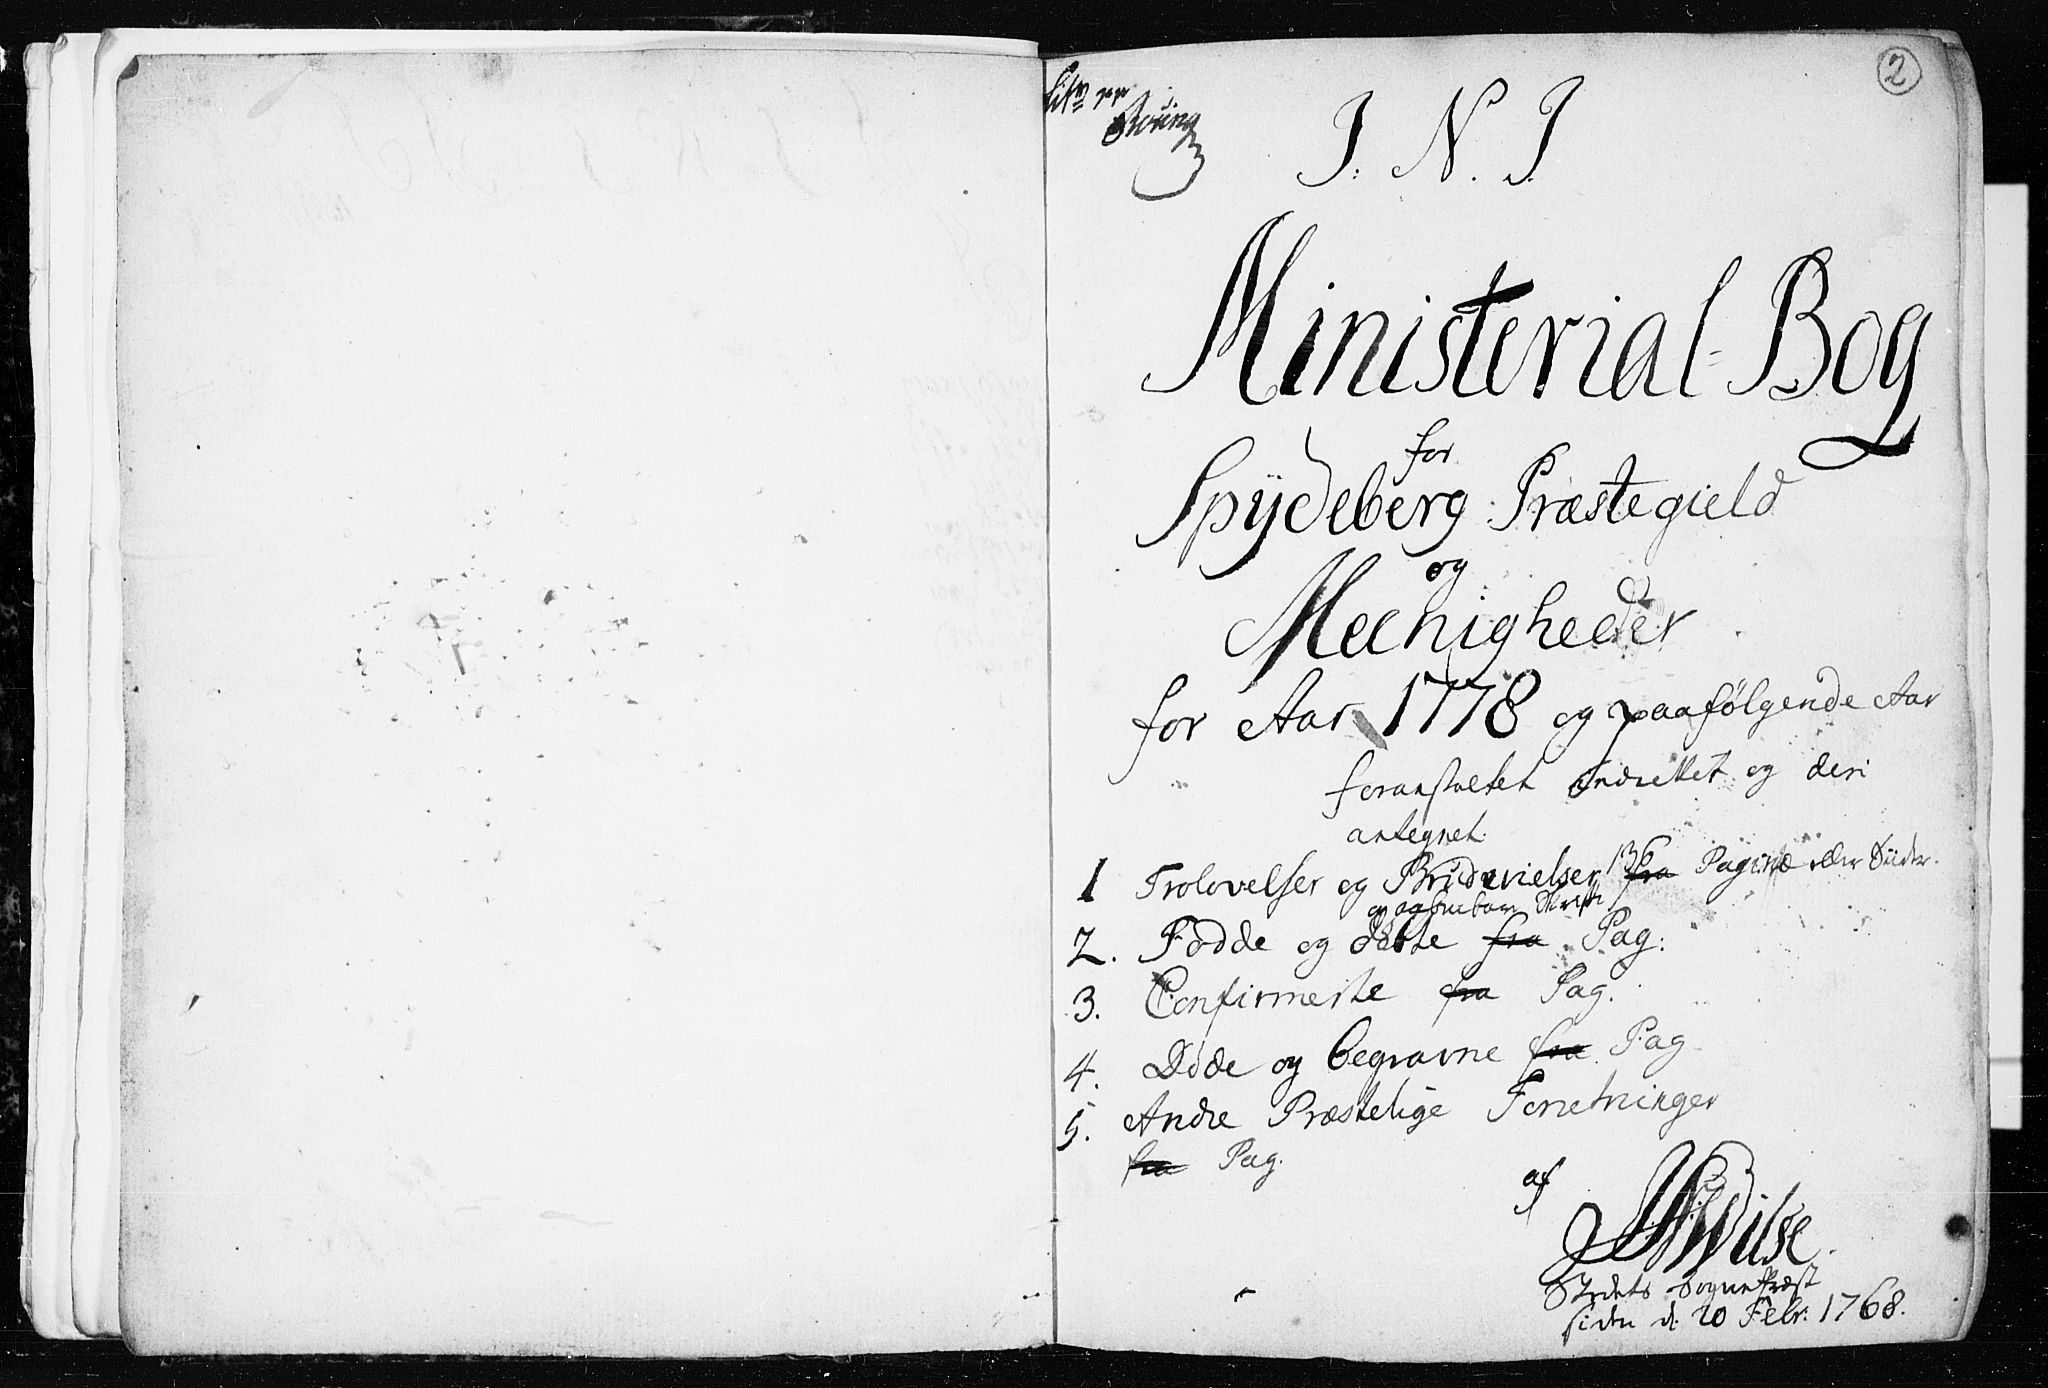 2
J. N. J.
Ministerial-Bog
for
Spÿdeberg Præstegield
og
Meenigheder
for Aar 1778 og paafølgende Aar
foranstaltet indrettet og deri
antegnet
1 Trolovelser og Brudevielser 136 fra Paginæ eller Siider.
2. Fødde og døbte fra Pag:
3. Confirmerte fra Pag.
4. Døde og begravne fra Pag
5. Andre Præstelige Forretninger
fra Pag.
af
JNWilse
Stedets Sogne Præst
siden d. 20 Febr: 1768.